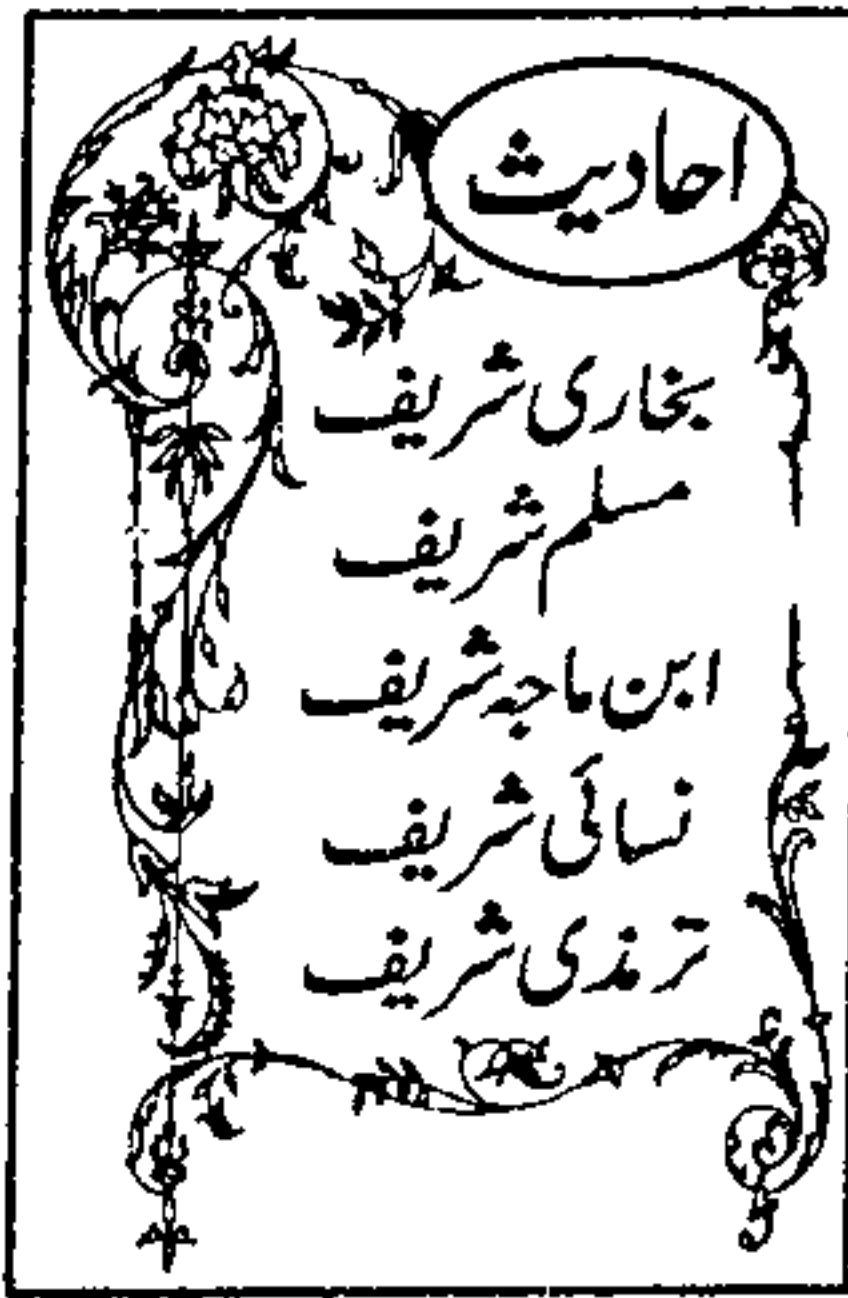 احادیث
بخاری شریف
مسلم شریف
ابن ماجہ شریف
نسائی شریف
ترمذی شریف